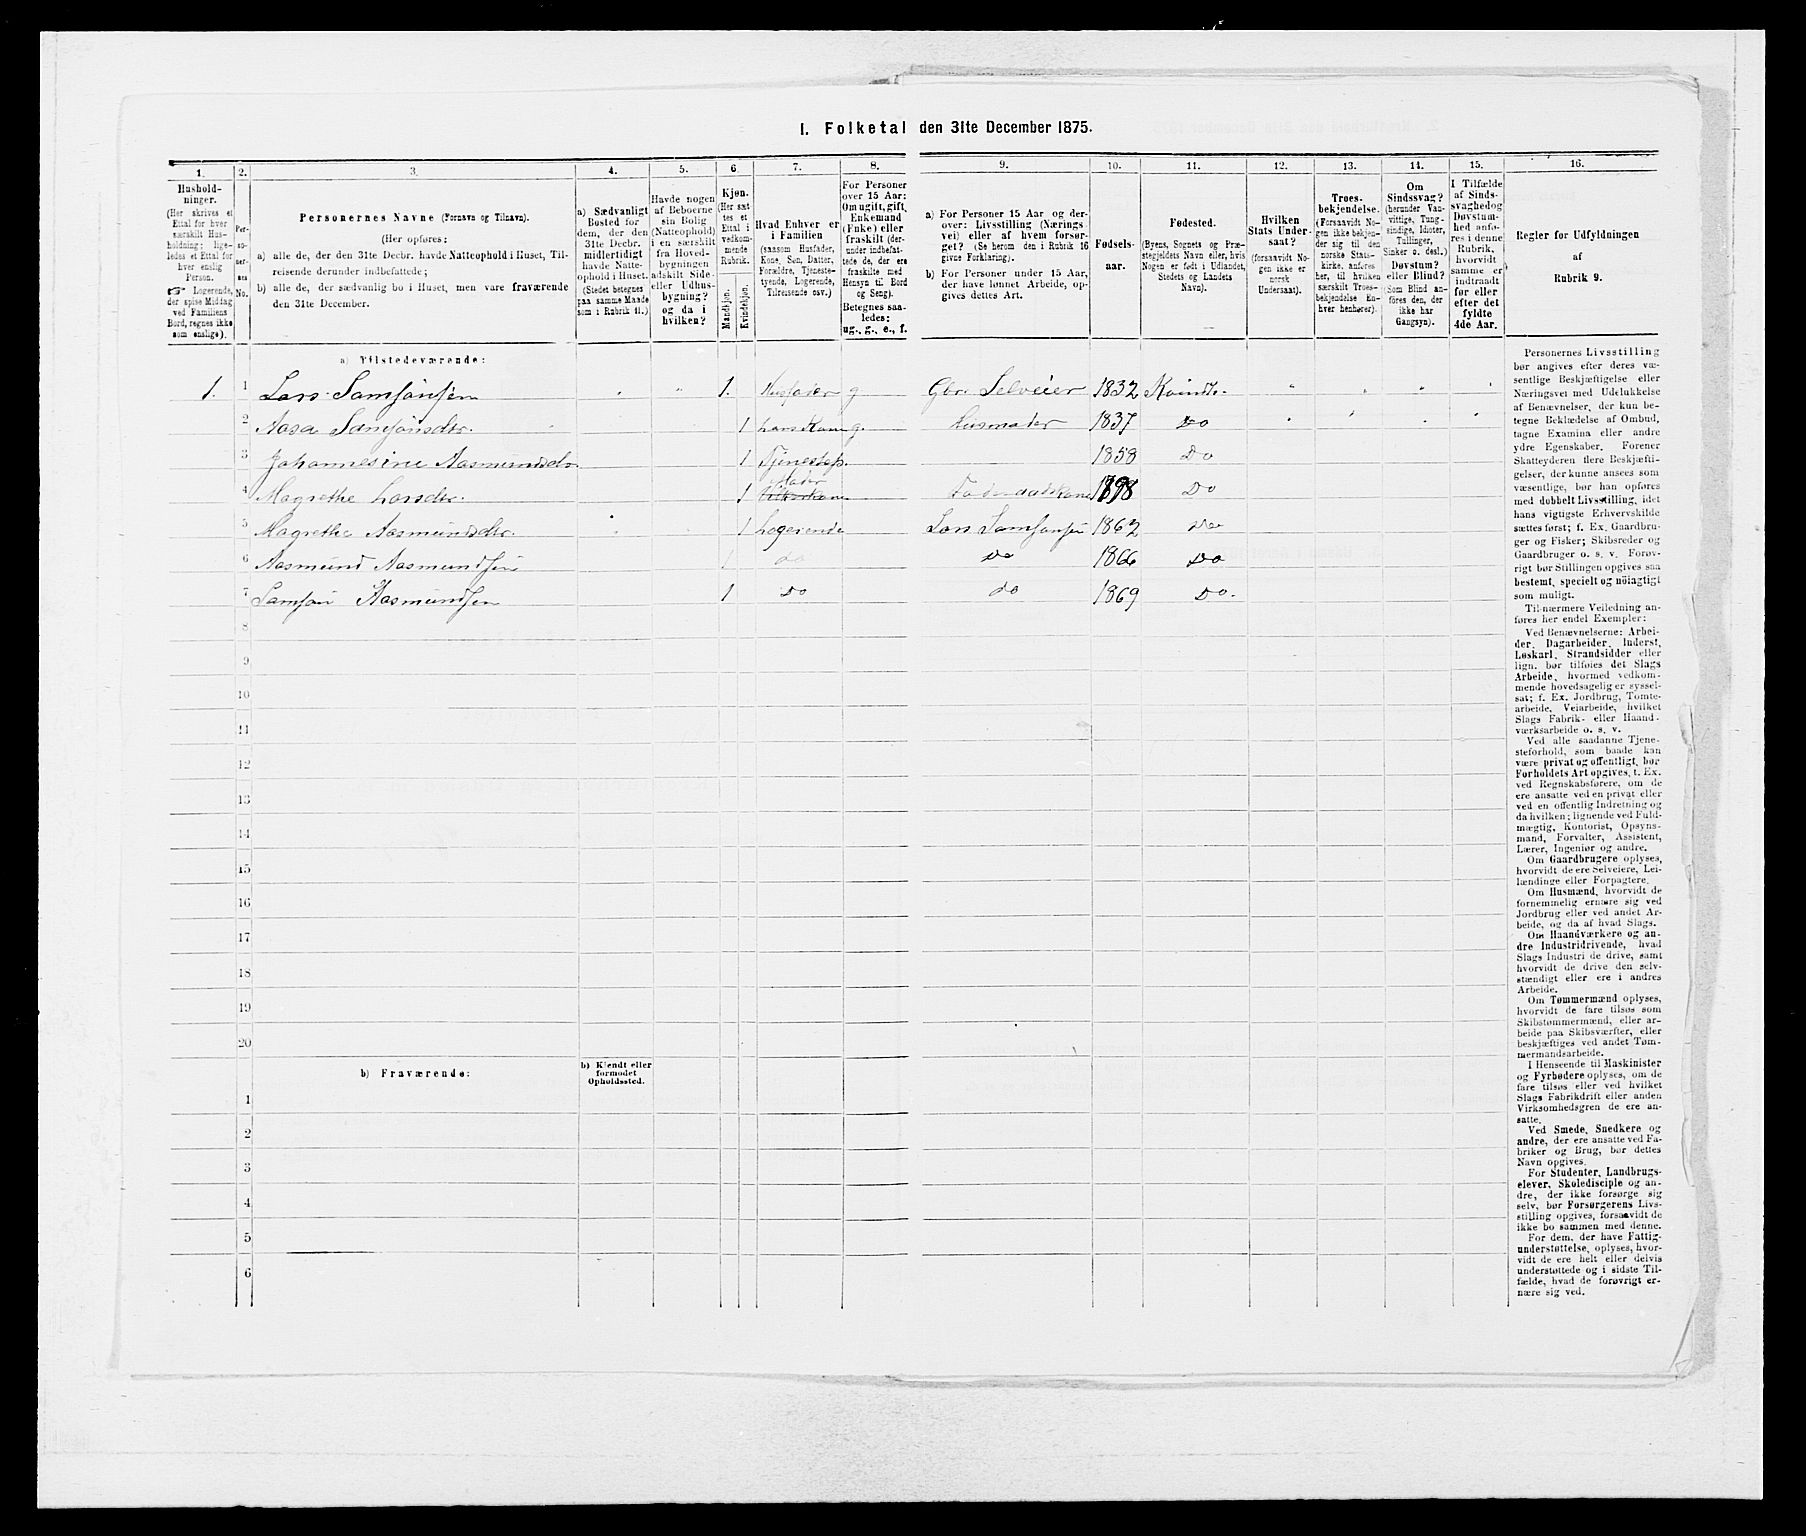 I. Folketal den 31te December 1875.
1. 2. 3. 4. 5. 6. 7. 8. 9. 10. 11. 12. 13. 14. 15. 16.
Hushold-
ninger.
(Her skrives et
Ettal for hver
særskilt Hus-
holdning; lige-
ledes et Ettal for
hver enslig
Person.
☞ Logerende,
der spise Middag
ved Familiens
Bord, regnes ikke
som enslige).
Per-
so-
ner-
nes
No.
Personernes Navne (Fornavn og Tilnavn).
(Her opføres:
a) alle de, der den 31te Decbr. havde Natteophold i Huset, Til-
reisende derunder indbefattede;
b) alle de, der sædvanlig bo i Huset, men vare fraværende
den 31te December.
a) Sædvanligt
Bosted for
dem, der den
31te Decbr.
midlertidigt
havde Natte-
ophold i Huset.
(Stedet betegnes
paa samme Maade
som i Rubrik 11.)
Havde nogen
af Beboerne
sin Bolig
(Natteophold)
i en særskilt
fra Hoved-
bygningen
adskilt Side-
eller Udhus-
bygning?
og da i
hvilken?
Kjøn.
(Her sæt-
tes et
Ettal i
vedkom-
mende
Rubrik.
Mandkjøn.
Kvindekjøn.
Hvad Enhver er
i Familien
(saasom Husfader,
Kone, Søn, Datter,
Forældre, Tjeneste-
tyende, Logerende,
Tilreisende osv.)
For Personer
over 15 Aar:
Om ugift, gift,
Enkemand
(Enke) eller
fraskilt (der-
under indbefat-
tede de, der ere
fraskilte med
Hensyn til Bord
og Seng).
Betegnes saa-
ledes:
ug., g., e., f.
a) For Personer 15 Aar og der-
over: Livsstilling (Nærings-
vei) eller af hvem forsør-
get? (Se herom den i Rubrik 16
givne Forklaring).
b) For Personer under 15 Aar,
der have lønnet Arbeide, op-
gives dettes Art.
Fødsels-
aar.
Fødested.
(Byens, Sognets og Præ-
stegjeldets Navn eller, hvis
Nogen er født i Udlandet,
Stedets og Landets
Navn).
Hvilken
Stats Under-
saat?
(forsaavidt No-
gen ikke er
norsk
Undersaat).
Troes-
bekjendelse.
(Forsaavidt No-
gen ikke bekjen-
der sig til den
norske Stats-
kirke, anføres
her, til hvilken
særskilt Troes-
bekjendelse En-
hver henhører).
Om
Sindssvag?
(herunder Van-
vittige, Tung-
sindige, Idioter,
Tullinger,
Sinker o. desl.)
Døvstum?
eller Blind?
(Som Blind an-
føres den, der
ikke har
Gangsyn).
I Tilfælde
af Sinds-
svaghed og
Døvstum-
hed anfø-
res i denne
Rubrik,
hvorvidt
samme er
indtraadt
før eller
efter det
fyldte
4de Aar.
Regler for Udfyldningen
af
Rubrik 9.
a) Tilstedeværende:
1. 1 Lars Samsonsen 1. Husfader g Gbr. Selveier 1832 Kvinds.
2 Aasa Samsonsdtr. 1 hans Kone g. Husmoder 1837 Do
3 Johannesine Aasmundsdtr 1 Tjenestep. 1858 Do
Moder
4 Magrethe Larsdtr. 1 Føderaadskone Do
5 Magrethe Aasmundsdtr. 1 Logerende Lars Samsonsen 1862 Do
6 Aasmund Aasmundsen 1 do Do 1866 Do
7 Samson Aasmundsen 1 Do do 1869 Do.
8
9
10
11
12
13
14
15
16
17
18
19
20
b) Fraværende:
b) Kjendt eller
formodet
Opholdssted.
1
2
3
4
5
6
Personernes Livsstilling
bør angives efter deres væ-
sentlige Beskjæftigelse eller
Næringsvei med Udelukkelse
af Benævnelser, der kun be-
tegne Beklædelse af Ombud,
tagne Examina eller andre
ydre Egenskaber. Forener
Skatteyderen flere Beskjæfti-
gelser, der kunne ansees som
væsentlige, bør han opføres
med dobbelt Livsstilling, idet
hans vigtigste Erhvervskilde
sættes først; f. Ex. Gaardbru-
ger og Fisker; Skibsreder og
Gaardbruger o. s. v. Forøv-
rigt bør Stillingen opgives saa
bestemt, specielt og nøiagtigt
som muligt.
Til nærmere Veiledning an-
føres her endel Exempler:
Ved Benævnelserne: Arbei-
der, Dagarbeider, Inderst,
Løskarl, Strandsidder eller
lign. bør tilføies det Slags
Arbeide, hvormed vedkom-
mende hovedsagelig er syssel-
sat; f. Ex. Jordbrug, Tomte-
arbeide, Veiarbeide, hvilket
Slags Fabrik- eller Haand-
værksarbeide o. s. v.
Ved alle saadanne Tjene-
steforhold, som baade kan
være privat og offentligt, bør
Forholdets Art opgives, t. Ex.
ved Regnskabsførere, om de
ere ansatte ved en privat eller
ved en offentlig Indretning og
da hvilken; lignende ved Fuld-
mægtig, Kontorist, Opsyns-
mand, Forvalter, Assistent,
Lærer, Ingeniør og andre.
Om Gaardbrugere oplyses,
hvorvidt de ere Selveiere, Lei-
lændinge eller Forpagtere.
Om Husmænd, hvorvidt de
fornemmelig ernære sig ved
Jordbrug eller ved andet Ar-
beide, og da af hvad Slags.
Om Haandværkere og an-
dre Industridrivende, hvad
Slags Industri de drive, samt
hvorvidt de drive den selv-
stændigt eller ere i andres
Arbeide.
Om Tømmermænd oplyses,
hvorvidt de fare tilsøs som
Skibstømmermænd, eller ar-
beide paa Skibsværfter, eller
beskjæftiges ved andet Tøm-
mermandsarbeide.
I Henseende til Maskinister
og Fyrbødere oplyses, om de
fare tilsøs eller ved hvilket
Slags Fabrikdrift eller anden
Virksomhedsgren de ere an-
satte.
Ved Smede, Snedkere og
andre, der ere ansatte ved Fa-
briker og Brug, bør dettes
Navn opgives.
For Studenter, Landbrugs-
elever, Skoledisciple og an-
dre, der ikke forsørge sig
selv, bør Forsørgerens Livs-
stilling opgives, forsaavidt de
ikke bo sammen med denne.
For dem, der have Fattig-
understøttelse, oplyses, hvor-
vidt de ere helt eller delvis
understøttede og i sidste Til-
fælde, hvad de forøvrigt er-
nære sig ved.